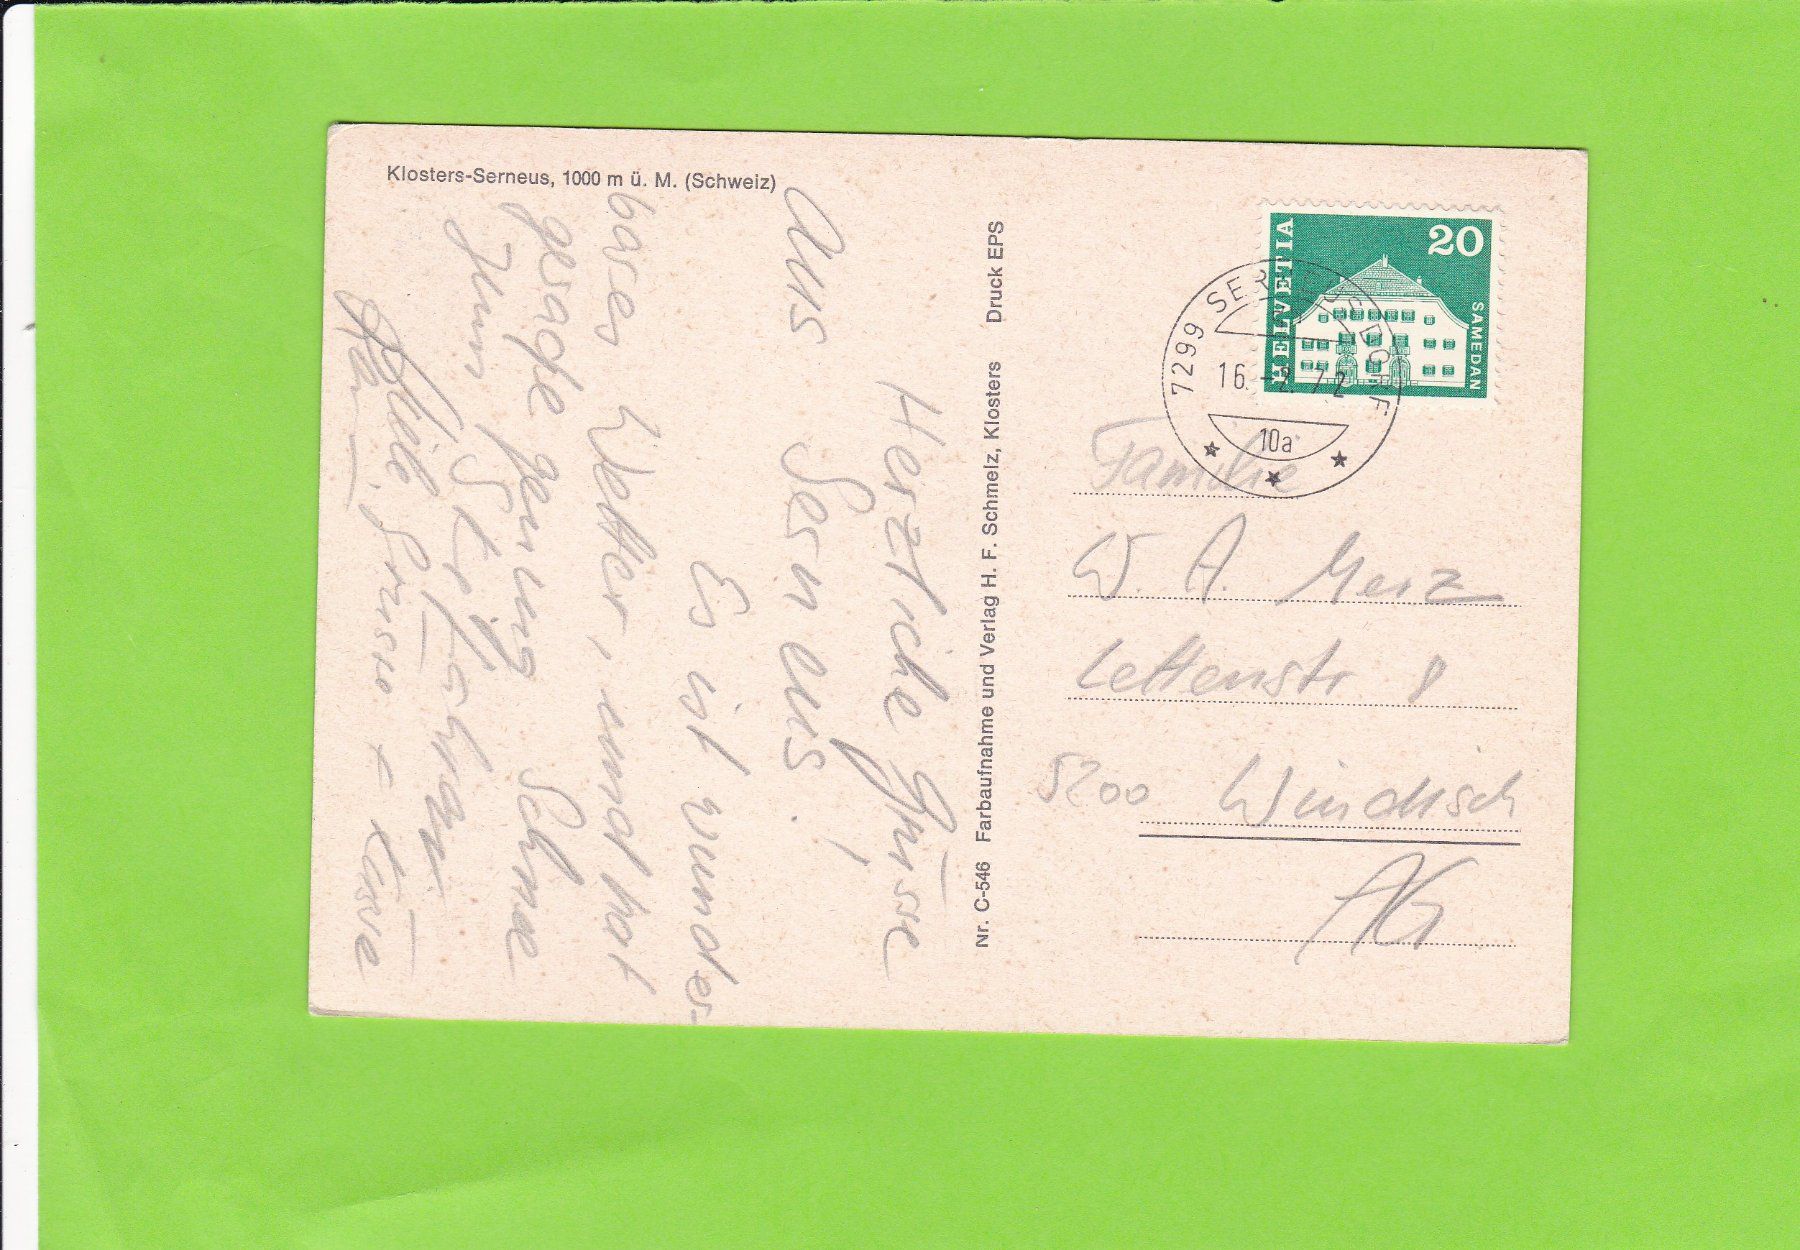 Klosters-Serneus, 1000 m ü. M. (Schweiz)
Herzliche Grüsse
aus Serneus!
Es ist wunder-
bares Wetter, und hat
gerade genug Schnee
zum Skifahren
+ Käsve
Nr. C-546 Farbaufnahme und Verlag H. F. Schmelz, Klosters Druck EPS
HELVETIA
20
SAMEDAN
7299 SERNEUS DORF
16.-2. 72
10a
Familie
W. A. Merz
Lettenstr 8
5200 Windisch
AG